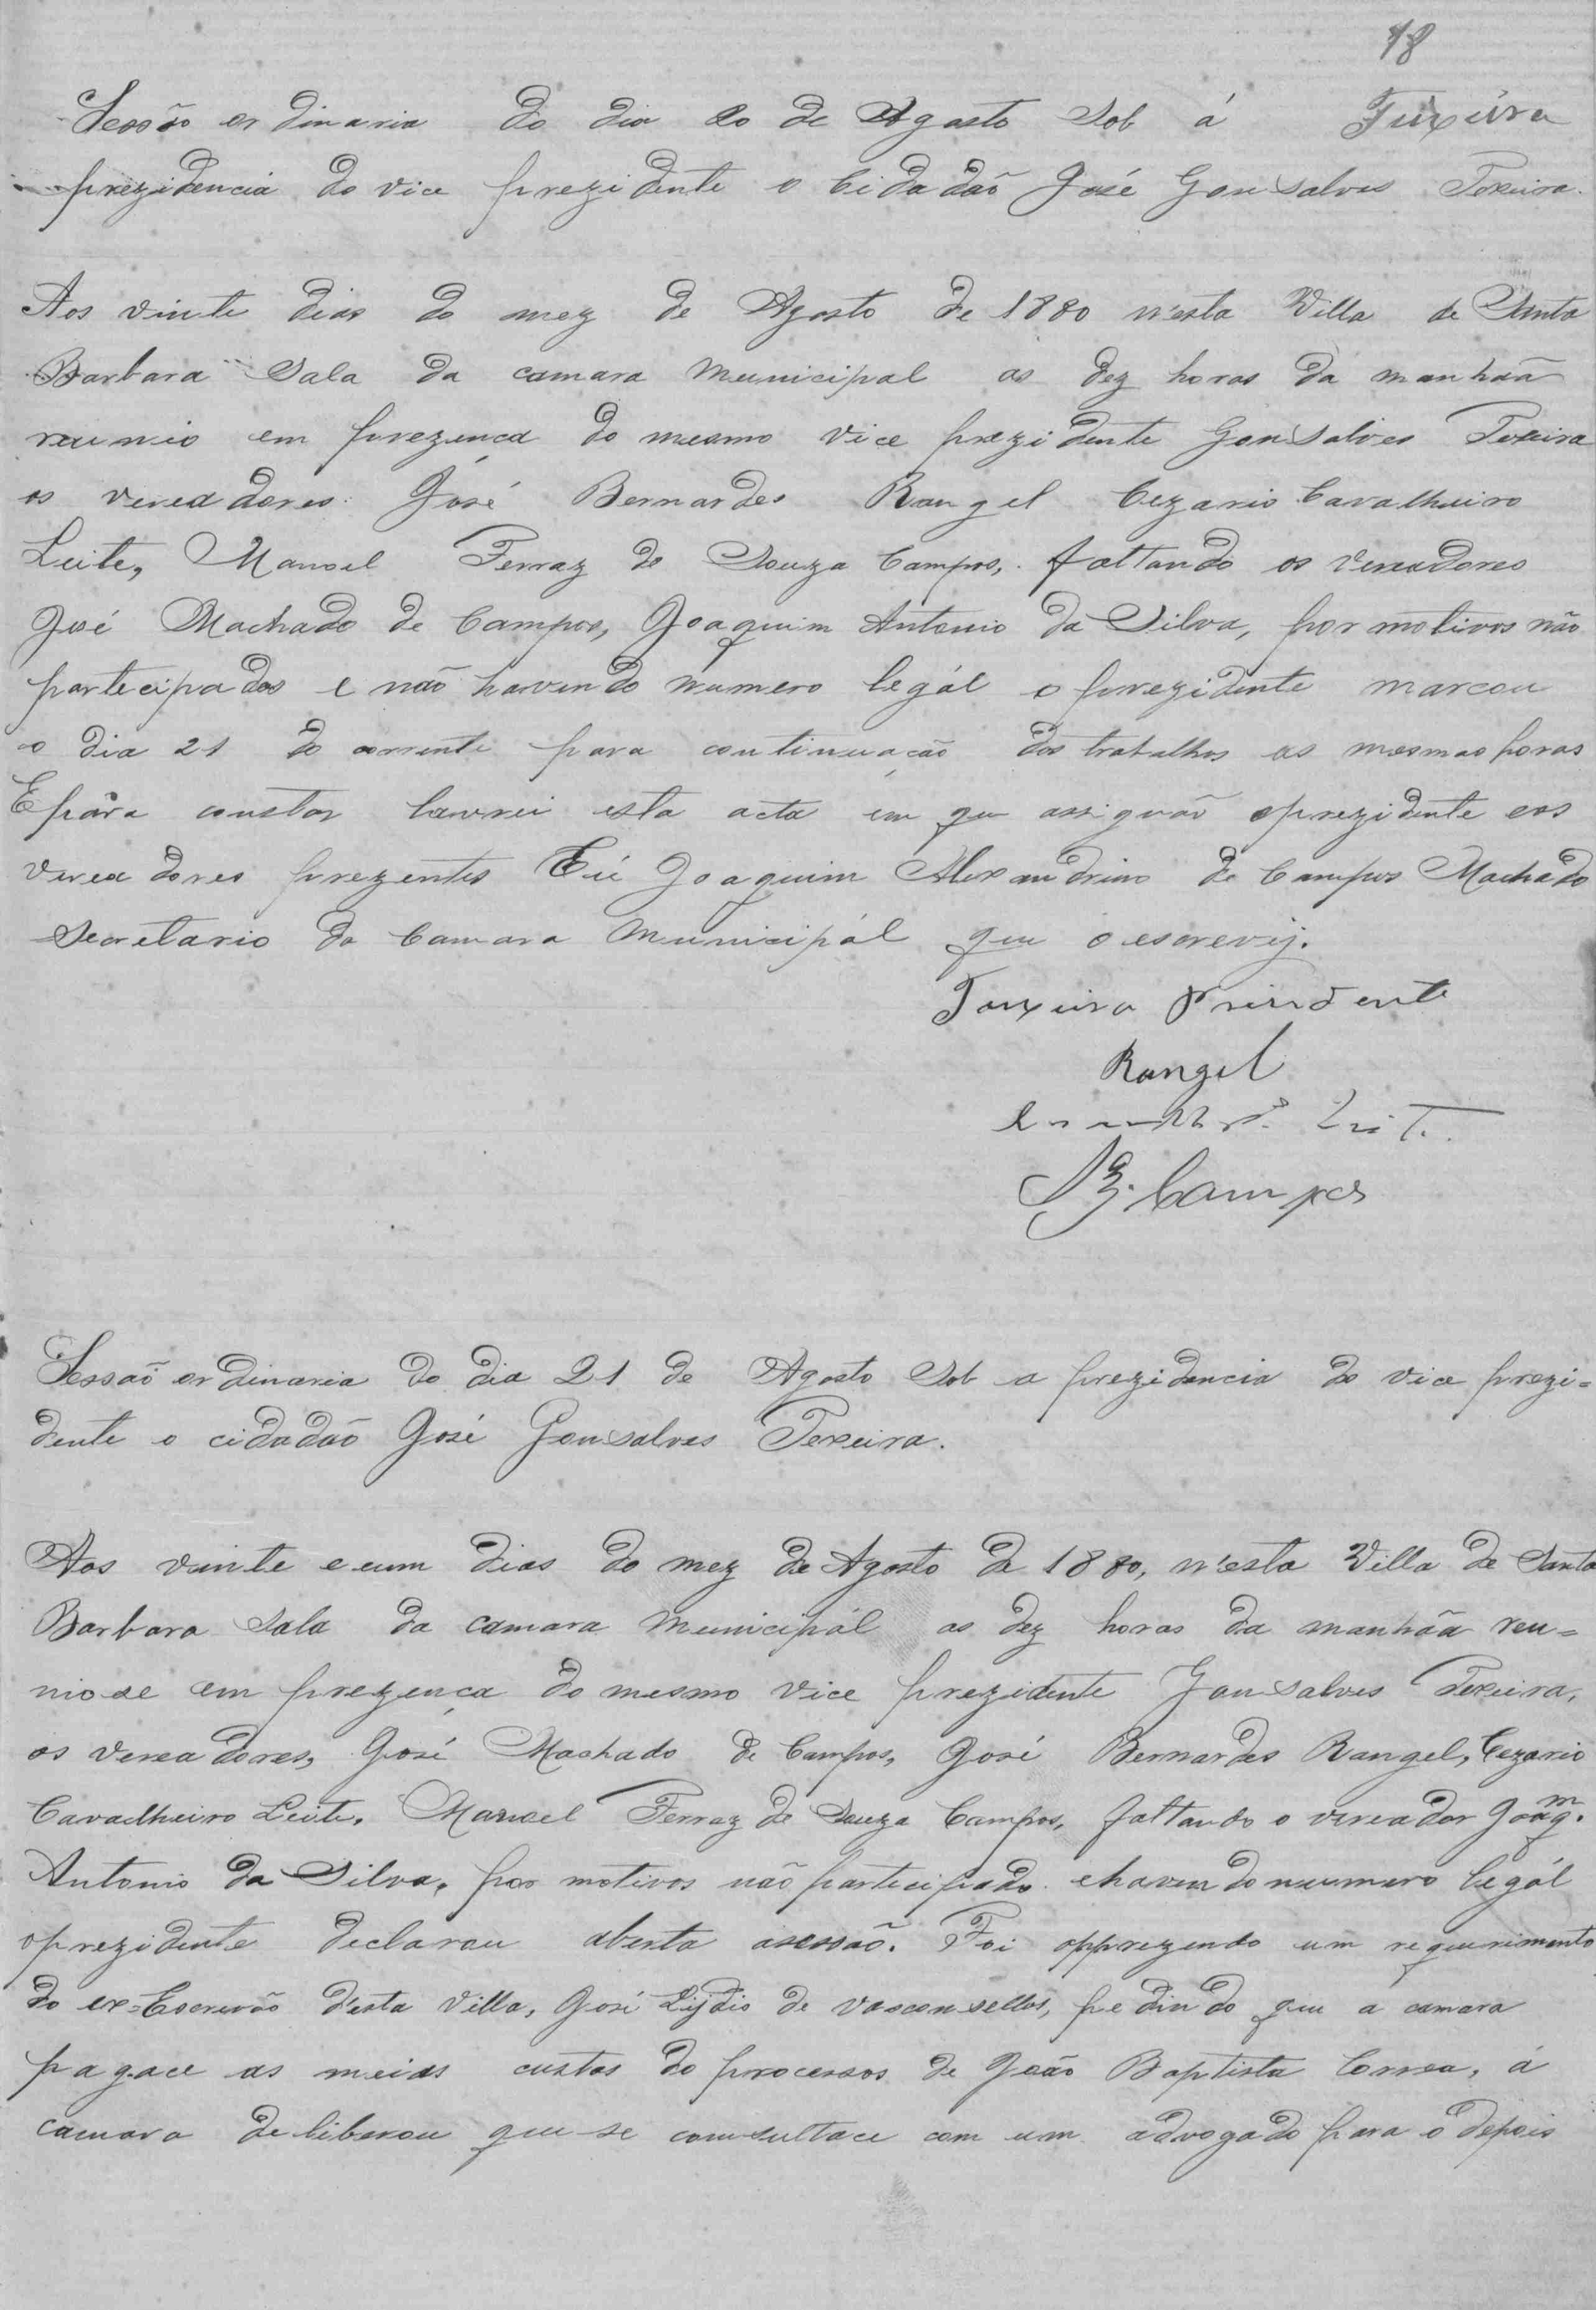 18
Sessão ordinaria do dia 20 de Agosto Sob á Teixeira
prezidencia do vice prezidente o Cidadão José Gonsalves Texeira.
Aos vinte dias do mez de Agosto de 1880 n'esta Villa de Santa
Barbara Sala da camara Municipal as dez horas da manhãa
reunio em prezença do mesmo vice prezidente Gonsalves Texeira
os vereadores José Bernardes Rangel Cezario Cavalheiro
Leite, Manoel Ferraz de Souza Campos, faltando os vereadores
José Machado de Campos, Joaquim Antonio da Silva, por motivos não
partecipados e não havendo numero legál o prezidente marcou
o dia 21 do corrente para continuação dos trabalhos as mesmas horas
E pára constar lavrei esta acta em que assignão oprezidente eos
vereadores prezentes Eú Joaquim Alexandrino de Campos Machado
Secretario da Camara Municipál que o escrevij.
Teixeira Prisidente
Rangel
Leite
Campos
Sessaõ ordinaria do dia 21 de Agosto Sob a prezidencia do vice prezi=
dente o cidadão José Gonsalves Texeira.
Aos vinte e eum dias do mez de Agosto de 1880, n'esta Villa de Santa
Barbara Sala da camara Municipál as dez horas da manhãa reu=
niose em prezença do mesmo vice prezidente Gonsalves Texeira,
os vereadores, José Machado de Campos, José Bernardes Rangel, Cezario
Cavalheiro Leite, Manoel Ferraz de Souza Campos, faltando o vereador Joaqm.
Antonio da Silva, por motivos não partecipado. ehavendo numero legál
oprezidente declarou aberta asessaõ. Foi opprezendo um requerimento
do ex=Escrivão d'esta Villa, José Lijdio de Vasconsellos, pedindo que á camara
pagace as meias custas do processos de João Baptista Correa, á
camara deliberou que se comsultace com um advogado para o depois